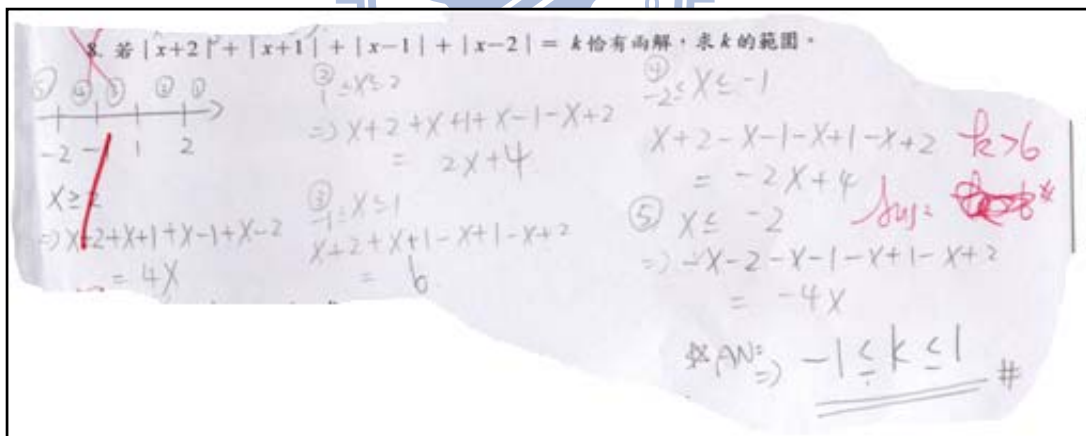 8. 若 | x+2 | + | x+1 | + | x-1 | + | x-2 | = k 恰有兩解，求 k 的範圍。
⑤ ④ ③ ② ①
-2 - 1 2
x ≥ 2
=> x+2+x+1+x-1+x-2
= 4x
②
1 ≤ x ≤ 2
=> x+2+x+1+x-1-x+2
= 2x+4
③
-1 ≤ x ≤ 1
x+2+x+1-x+1-x+2
= 6
④
-2 ≤ x ≤ -1
x+2-x-1-x+1-x+2
= -2x+4
⑤ x ≤ -2
=> -x-2-x-1-x+1-x+2
= -4x
AN: => -1 ≤ k ≤ 1 #
k>6
Ans: